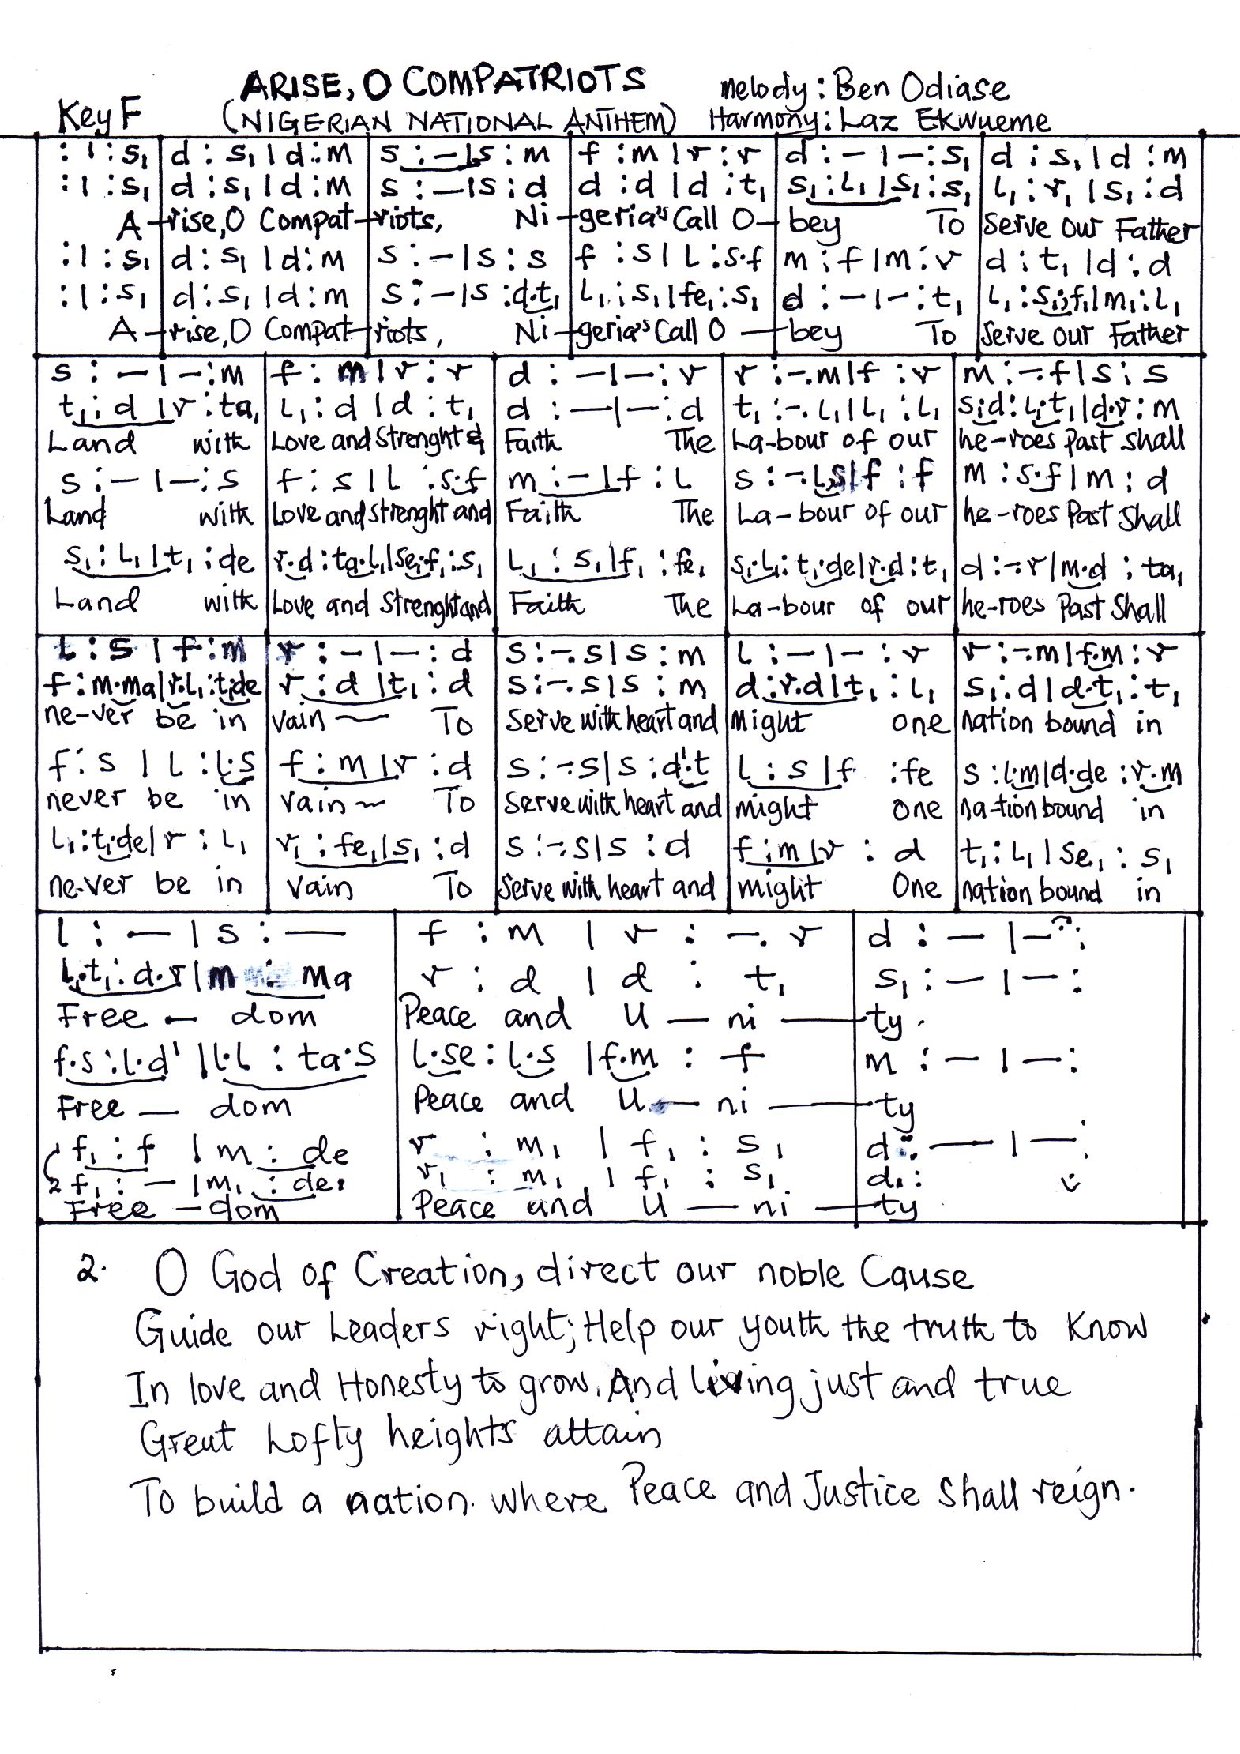 ARISE, O COMPATRIOTS
Melody: Ben Odiase
Key F
(NIGERIAN NATIONAL ANTHEM)
Harmony: Laz Ekwueme
: | : s₁ | d : s₁ | d : m | s : – | s : m | f : m | r : r | d : – | – : s₁ | d : s₁ | d : m
: | : s₁ | d : s₁ | d : m | s : – | s : d | d : d | d : t₁ | s₁ : l₁ | s₁ : s₁ | l₁ : r₁ | s₁ : d
A – rise, O Compat – riots, Ni – geria's Call O – bey To Serve our Father
: | : s₁ | d : s₁ | d : m | s : – | s : s | f : s | l : s.f | m : f | m : r | d : t₁ | d : d
: | : s₁ | d : s₁ | d : m | s : – | s : d.t₁ | l₁ : s₁ | fe₁ : s₁ | d : – | – : t₁ | l₁ : s₁.f₁ | m₁ : l₁
A – rise, O Compat – riots, Ni – geria's Call O – bey To Serve our Father
s : – | – : m | f : m | r : r | d : – | – : r | r : –.m | f : r | m : –.f | s : s
t₁ : d | r : ta₁ | l₁ : d | d : t₁ | d : – | – : d | t₁ : –.l₁ | l₁ : l₁ | s₁.d : l₁.t₁ | d.r : m
Land with Love and Strenght & Faith The La-bour of our he-roes Past shall
s : – | – : s | f : s | l : s.f | m : – | f : l | s : –.l.s | f : f | m : s.f | m : d
Land with Love and strenght and Faith The La-bour of our he-roes Past Shall
s₁ : l₁ | t₁ : de | r.d : ta₁.l₁ | se₁.f₁ : s₁ | l₁ : s₁ | f₁ : fe₁ | s₁.l₁ : t₁.de | r.d : t₁ | d : –.r | m.d : ta₁
Land with Love and Strenght and Faith The La-bour of our he-roes Past Shall
l : s | f : m | r : – | – : d | s : –.s | s : m | l : – | – : r | r : –.m | f.m : r
f : m.ma | r.l₁ : t₁.de | r : d | t₁ : d | s : –.s | s : m | d : r.d | t₁ : l₁ | s₁ : d | d.t₁ : t₁
ne-ver be in vain To Serve with heart and Might one Nation bound in
f : s | l : l.s | f : m | r : d | s : –.s | s : d'.t | l : s | f : fe | s : l.m | d.de : r.m
never be in vain To Serve with heart and might one na-tion bound in
l₁ : t₁.de | r : l₁ | r₁ : fe₁ | s₁ : d | s : –.s | s : d | f : m | r : d | t₁ : l₁ | se₁ : s₁
ne-ver be in vain To Serve with heart and might One nation bound in
l : – | s : – | f : m | r : –.r | d : – | – :
l₁.t₁ : d.r | m : ma | r : d | d : t₁ | s₁ : – | – :
Free – dom Peace and U – ni – ty.
f.s : l.d' | l.l : ta.s | l.se : l.s | f.m : f | m : – | – :
Free – dom Peace and U – ni – ty
f₁ : f | m : de | r : m₁ | f₁ : s₁ | d : – | – :
2 f₁ : – | m₁ : de₁ | r₁ : m₁ | f₁ : s₁ | d₁ :
Free – dom Peace and U – ni – ty
2. O God of Creation, direct our noble Cause
Guide our Leaders right; Help our youth the truth to Know
In love and Honesty to grow. And living just and true
Great Lofty heights attain
To build a nation. where Peace and Justice Shall reign.